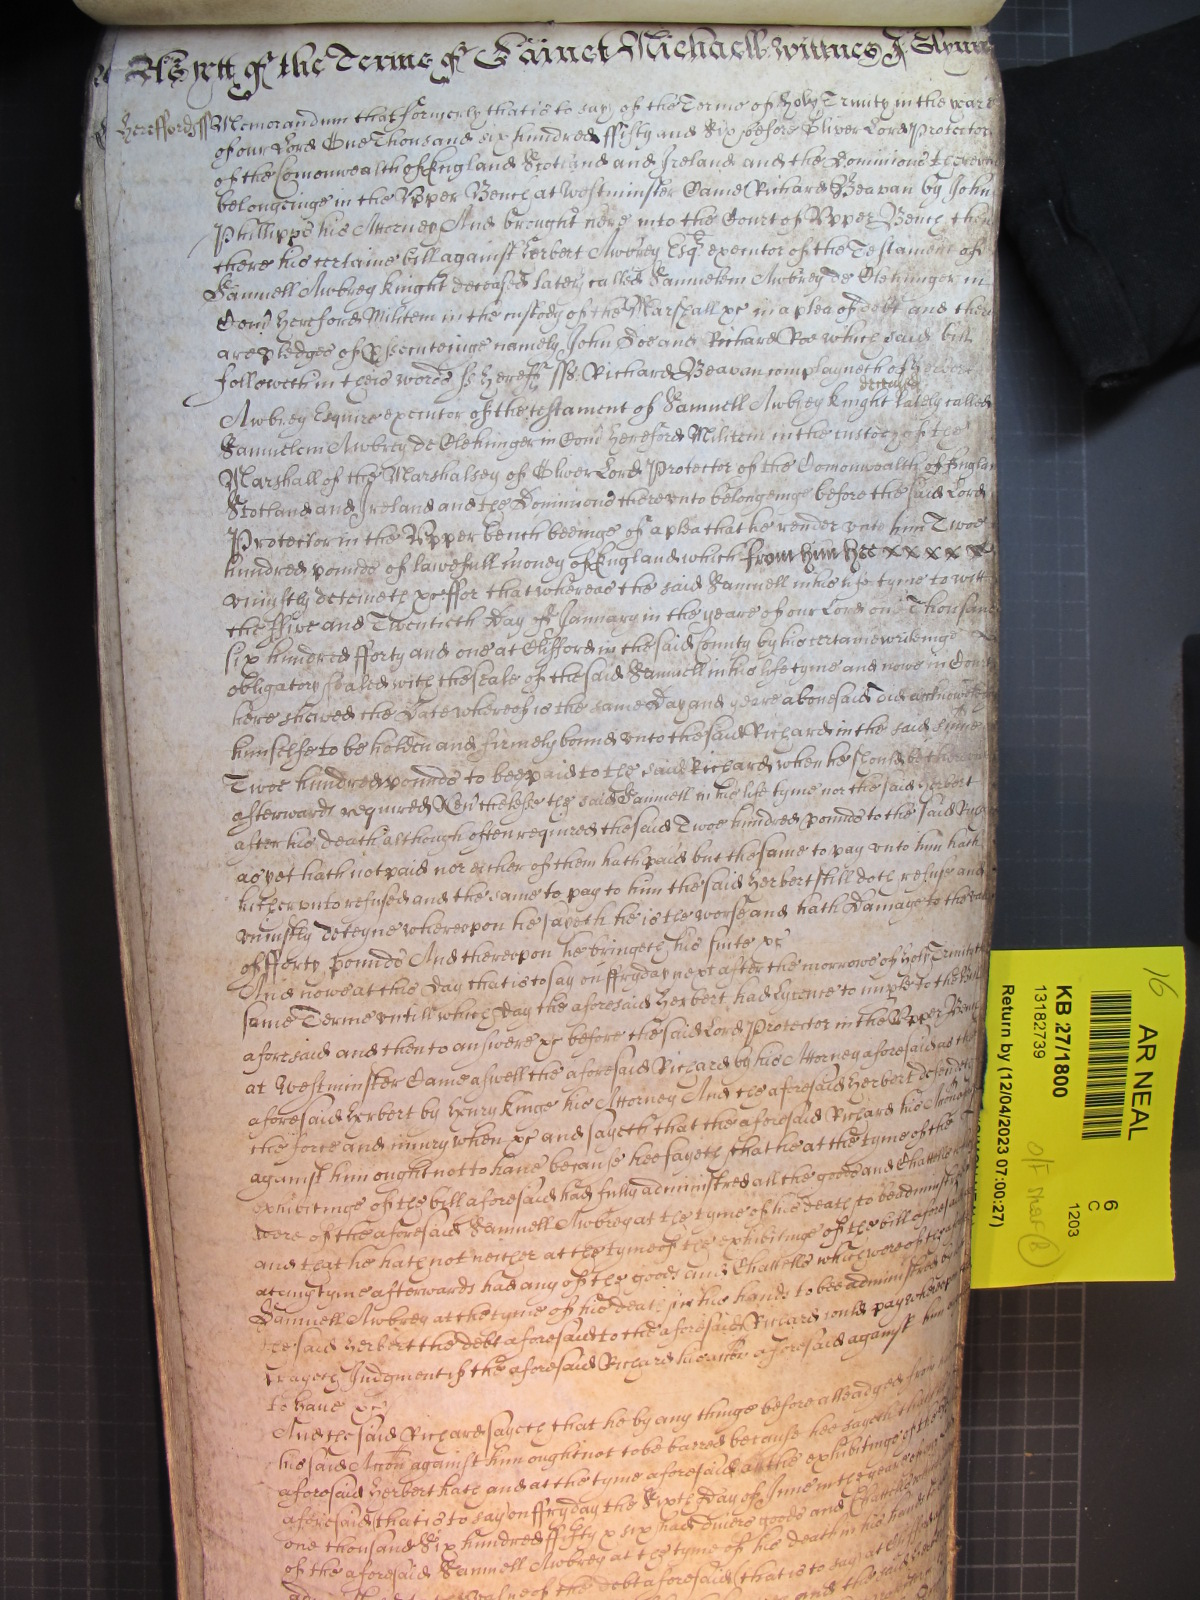 As yett of the Terme of Sainct Michaell Wittnes J Glynn
Hereffords ss Memorandum that formerly that is to say of the Terme of Holy Trinity in the yeare
of our Lord One Thousand six hundred ffifty and Six before Oliver Lord Protector
of the Comonwealth of England Scotland and Ireland and the Dominions thereunto
belonginge in the Upper Bench at Westminster Came Richard Beavan by John
Phillipps his Attorney And brought here into the Court of Upper Bench then
there his certaine bill against Herbert Awbrey Esqr. executor of the Testament of
Samuell Awbrey knight deceased lately called Samuelem Awbrey de Clehunger in
Com Hereford Militem in the custody of the Marshall &c in a plea of debt and there
are pledges of Prosecuteinge namely John Doe and Richard Roe which said bill
followeth in theis words ss Hereff ss. Richard Beavan complayneth of Herbert
deceased
Awbrey Esquire executor of the testament of Samuell Awbrey knight lately called
Samuelem Awbrey de Clehunger in Com Hereford Militem in the custody of the
Marshall of the Marshalsey of Oliver Lord Protector of the Comonwealth of England
Scotland and Ireland and the Dominions thereunto belonginge before the said Lord
Protector in the Upper bench beeinge of a plea that he render unto him Twoe
hundred pounds of lawfull money of England which from him hee x x x x x x
uniustly deteineth &c ffor that whereas the said Samuell in his life tyme to witt
the ffive and Twentieth Day of January in the yeare of our Lord one Thousand
six hundred fforty and one at Clifford in the said County by his certaine writeinge
obligatory sealed with the seale of the said Samuell in his life tyme and nowe in Court
here shewed the Date whereof is the same Day and yeare abovesaid did acknowledge
himselfe to be holden and firmely bound unto the said Richard in the said summe
Twoe hundred pounds to bee paid to the said Richard when he should be thereunto
afterwards required Neverthelesse the said Samuell in his life tyme nor the said Herbert
after his death although often required the said Twoe hundred pounds to the said Richard
as yet hath not paid nor either of them hath paid but the same to pay unto him hath
hitherunto refused and the same to pay to him the said Herbert still doth refuse and
uniustly deteyne whereupon he sayeth he is the worse and hath Damage to the value
of fforty pounds And thereupon he bringeth his suite &c
And nowe at this Day that is to say on ffryday next after the morrowe of Holy Trinity
same Terme untill which Day the aforesaid Herbert had lycence to imple to the bill
aforesaid and then to answere &c before the said Lord Protector in the Upper Bench
at Westminster Came aswell the aforesaid Richard by his Attorney aforesaid as the
aforesaid Herbert by Henry Kinge his Attorney And the aforesaid Herbert defendeth
the force and iniury when &c and sayeth that the aforesaid Richard his Accion
against him ought not to have because hee sayeth that he at the tyme of the
exhibitinge of the bill aforesaid had fully administred all the goods and Chattells which
were of the aforesaid Samuell Awbrey at the tyme of his death to be administred
and that he hath not neither at the tyme of the exhibitinge of the bill aforesaid
at any tyme afterwards had any of the goods and Chattells which were of the
Samuell Awbrey at the tyme of his death in his hands to bee administred
the said Herbert the debt aforesaid to the aforesaid Richard could pay whereupon
prayeth Judgment if the aforesaid Richard his accion aforesaid against him
to have &c
And the said Richard sayeth that he by any thinge before alleadged from
his said Accion against him ought not to be barred because hee sayeth that
aforesaid Herbert hath and at the tyme aforesaid the exhibitinge of the
aforesaid that is to say on ffryday the Sixth Day of June in the yeare
one thousand Six hundred ffifty & six had divers goods and Chattells
of the aforesaid Samuell Awbrey at the tyme of his death in his hands
value of the debt aforesaid (that is to say at Clifford
16
AR NEAL
6
C
1203
KB 27/1800
13182739
Return by (12/04/2023 07:00:27)